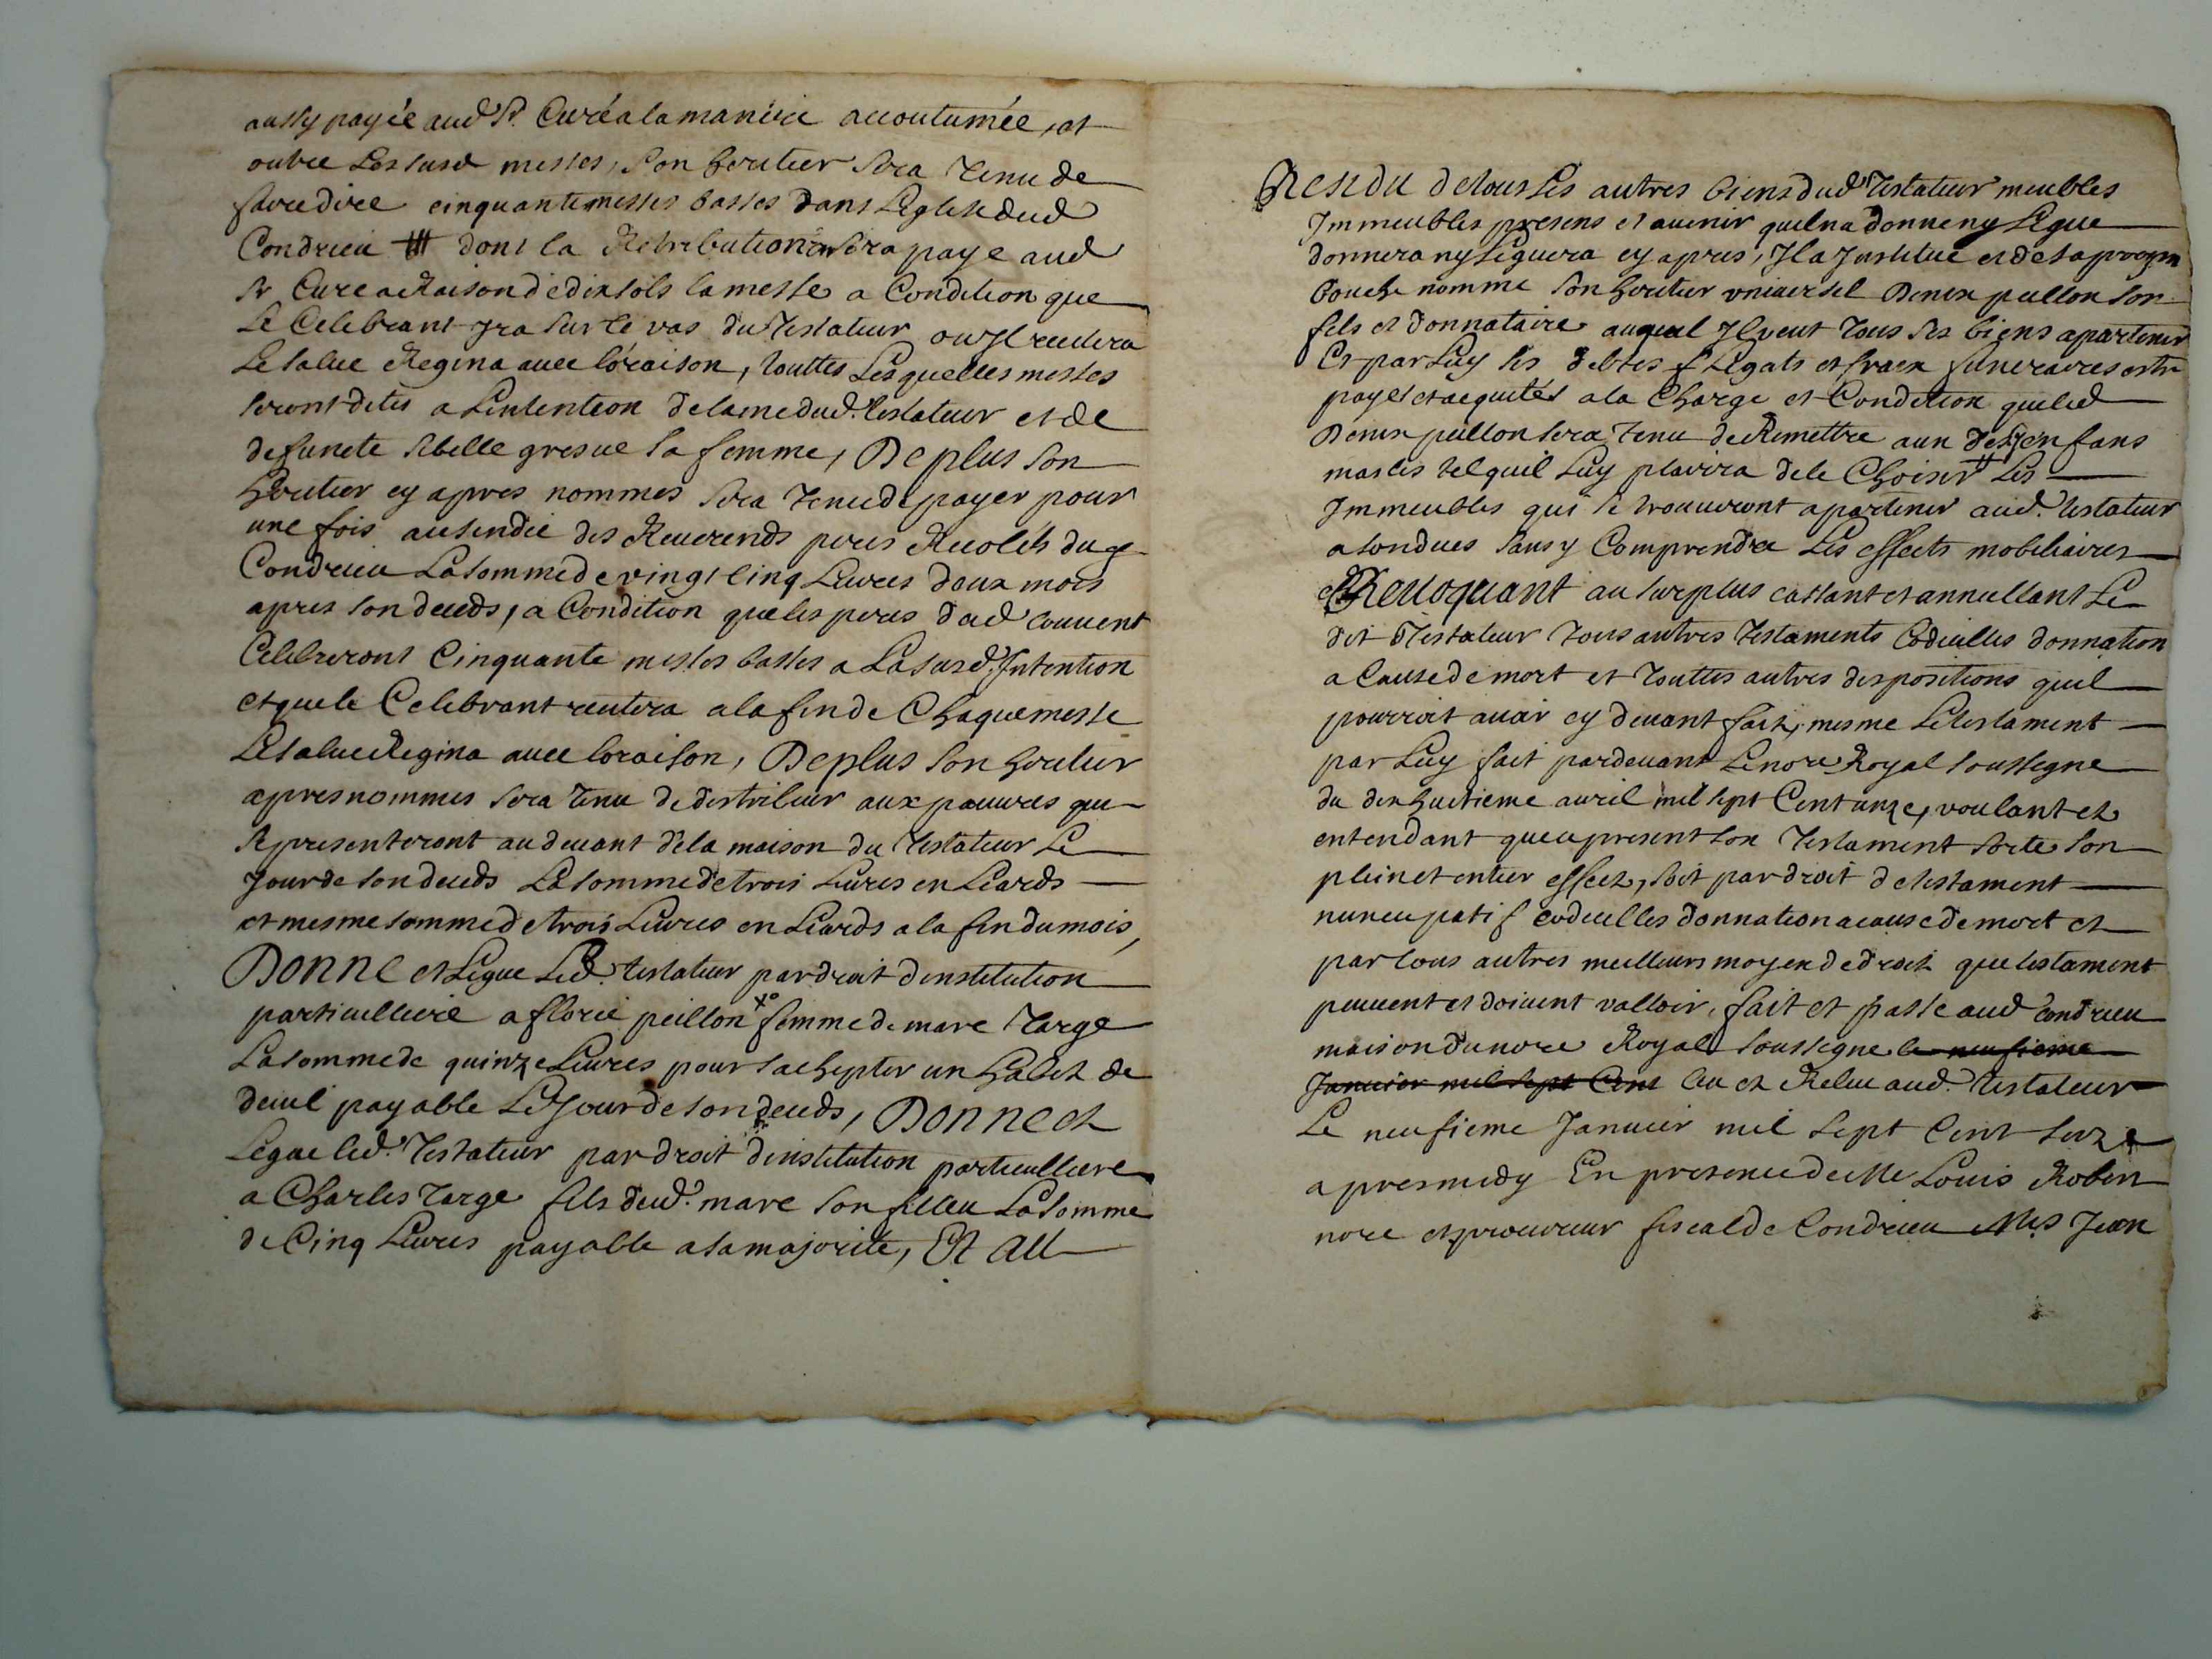 aussy payée aud Sr. Curé a la maniere accoutumée, et
outre Les susd messes, Son heritier sera tenu de
faire dire cinquante messes basses dans Leglise dud
Condrieu dont la Retribution sera payé aud
Sr Cure a Raison de dix sols la messe a Condition que
Le Celebrant Ira sur le vas du Testateur ou Il recitera
Le salue Regina avec l'oraison, touttes Lesquelles messes
seront dites a Lintention de lame dud. testateur et de
defuncte sibelle gresue sa femme, De plus son
heritier cy apres nommés sera tenu de payer pour
une fois au sendic des Reuerends peres Recolets du
Condrieu La somme de vingt cinq Liures deux mois
apres son deceds, a Condition que les peres dud couuent
Celebreront Cinquante messes basses a La susd. Intention
et que le Celebrant recitera a la fin de Chaque messe
Le salue Regina avec loraison, De plus son heritier
apres nommés sera tenu de distribuer aux pauures qui
se presenteront au deuant de la maison du testateur Le
Jour de son deceds La somme de trois Liures en Liards
et mesme somme de trois Liures en Liards a la fin du mois,
Donne et Legue Led. testateur par droit dinstitution
particulliere a florie peillon xo femme de marc targe
La somme de quinze Liures pour sachepter un habit de
deuil payable Le Jour de son deceds, Donne et
Legue led. Testateur par droit dinstitution particulliere
a Charles targe fils dud. marc son filleu La somme
de Cinq Liures payable a sa majorité, Et au
Residu de tous Les autres biens dud Testateur meubles
Immeubles presens et auenir quil na donne ny Legue
donnera ny Leguera cy apres, Il a Institué et de sa propre
bouche nommé son heritier vniuersel Denis peillon son
fils et donnataire auquel Il veut tous ses biens apartenir
Et par Luy ses debtes Legats et fraix funeraires estre
payes et acquités a la Charge et Condition que led
Denis peillon sera tenu de Remettre a un de ses enfans
masles tel quil Luy plairra de le Choisir Les
Immeubles qui se trouueront apartenir aud. testateur
a son deces sans y Comprendre Les effects mobiliaires
et Reuoquant au surplus cassant et annullant Le
dit Testateur tous autres testaments Codicilles donnation
a Cause de mort et touttes autres dispositions quil
pourroit auoir cy deuant fait, mesme Le testament
par Luy fait pardeuant Le nore Royal soussigne
du dix huitieme auril mil sept Cent unze, voulant et
entendant que ce present son testament sorte son
plein et entier effect, soit par droit de testament
nuncupatif codicilles donnation a cause de mort et
par tous autres meilleurs moyen de droit que testament
peuuent et doiuent valloir, fait et passe aud condrieu
maison du nore Royal soussigne le neufieme
Januier mil sept Cent leu et Releu aud. testateur
Le neufieme Januier mil sept Cent seize
apres midy En presence de Me Louis Robin
nore et procureur fiscal de Condrieu Mes Jean